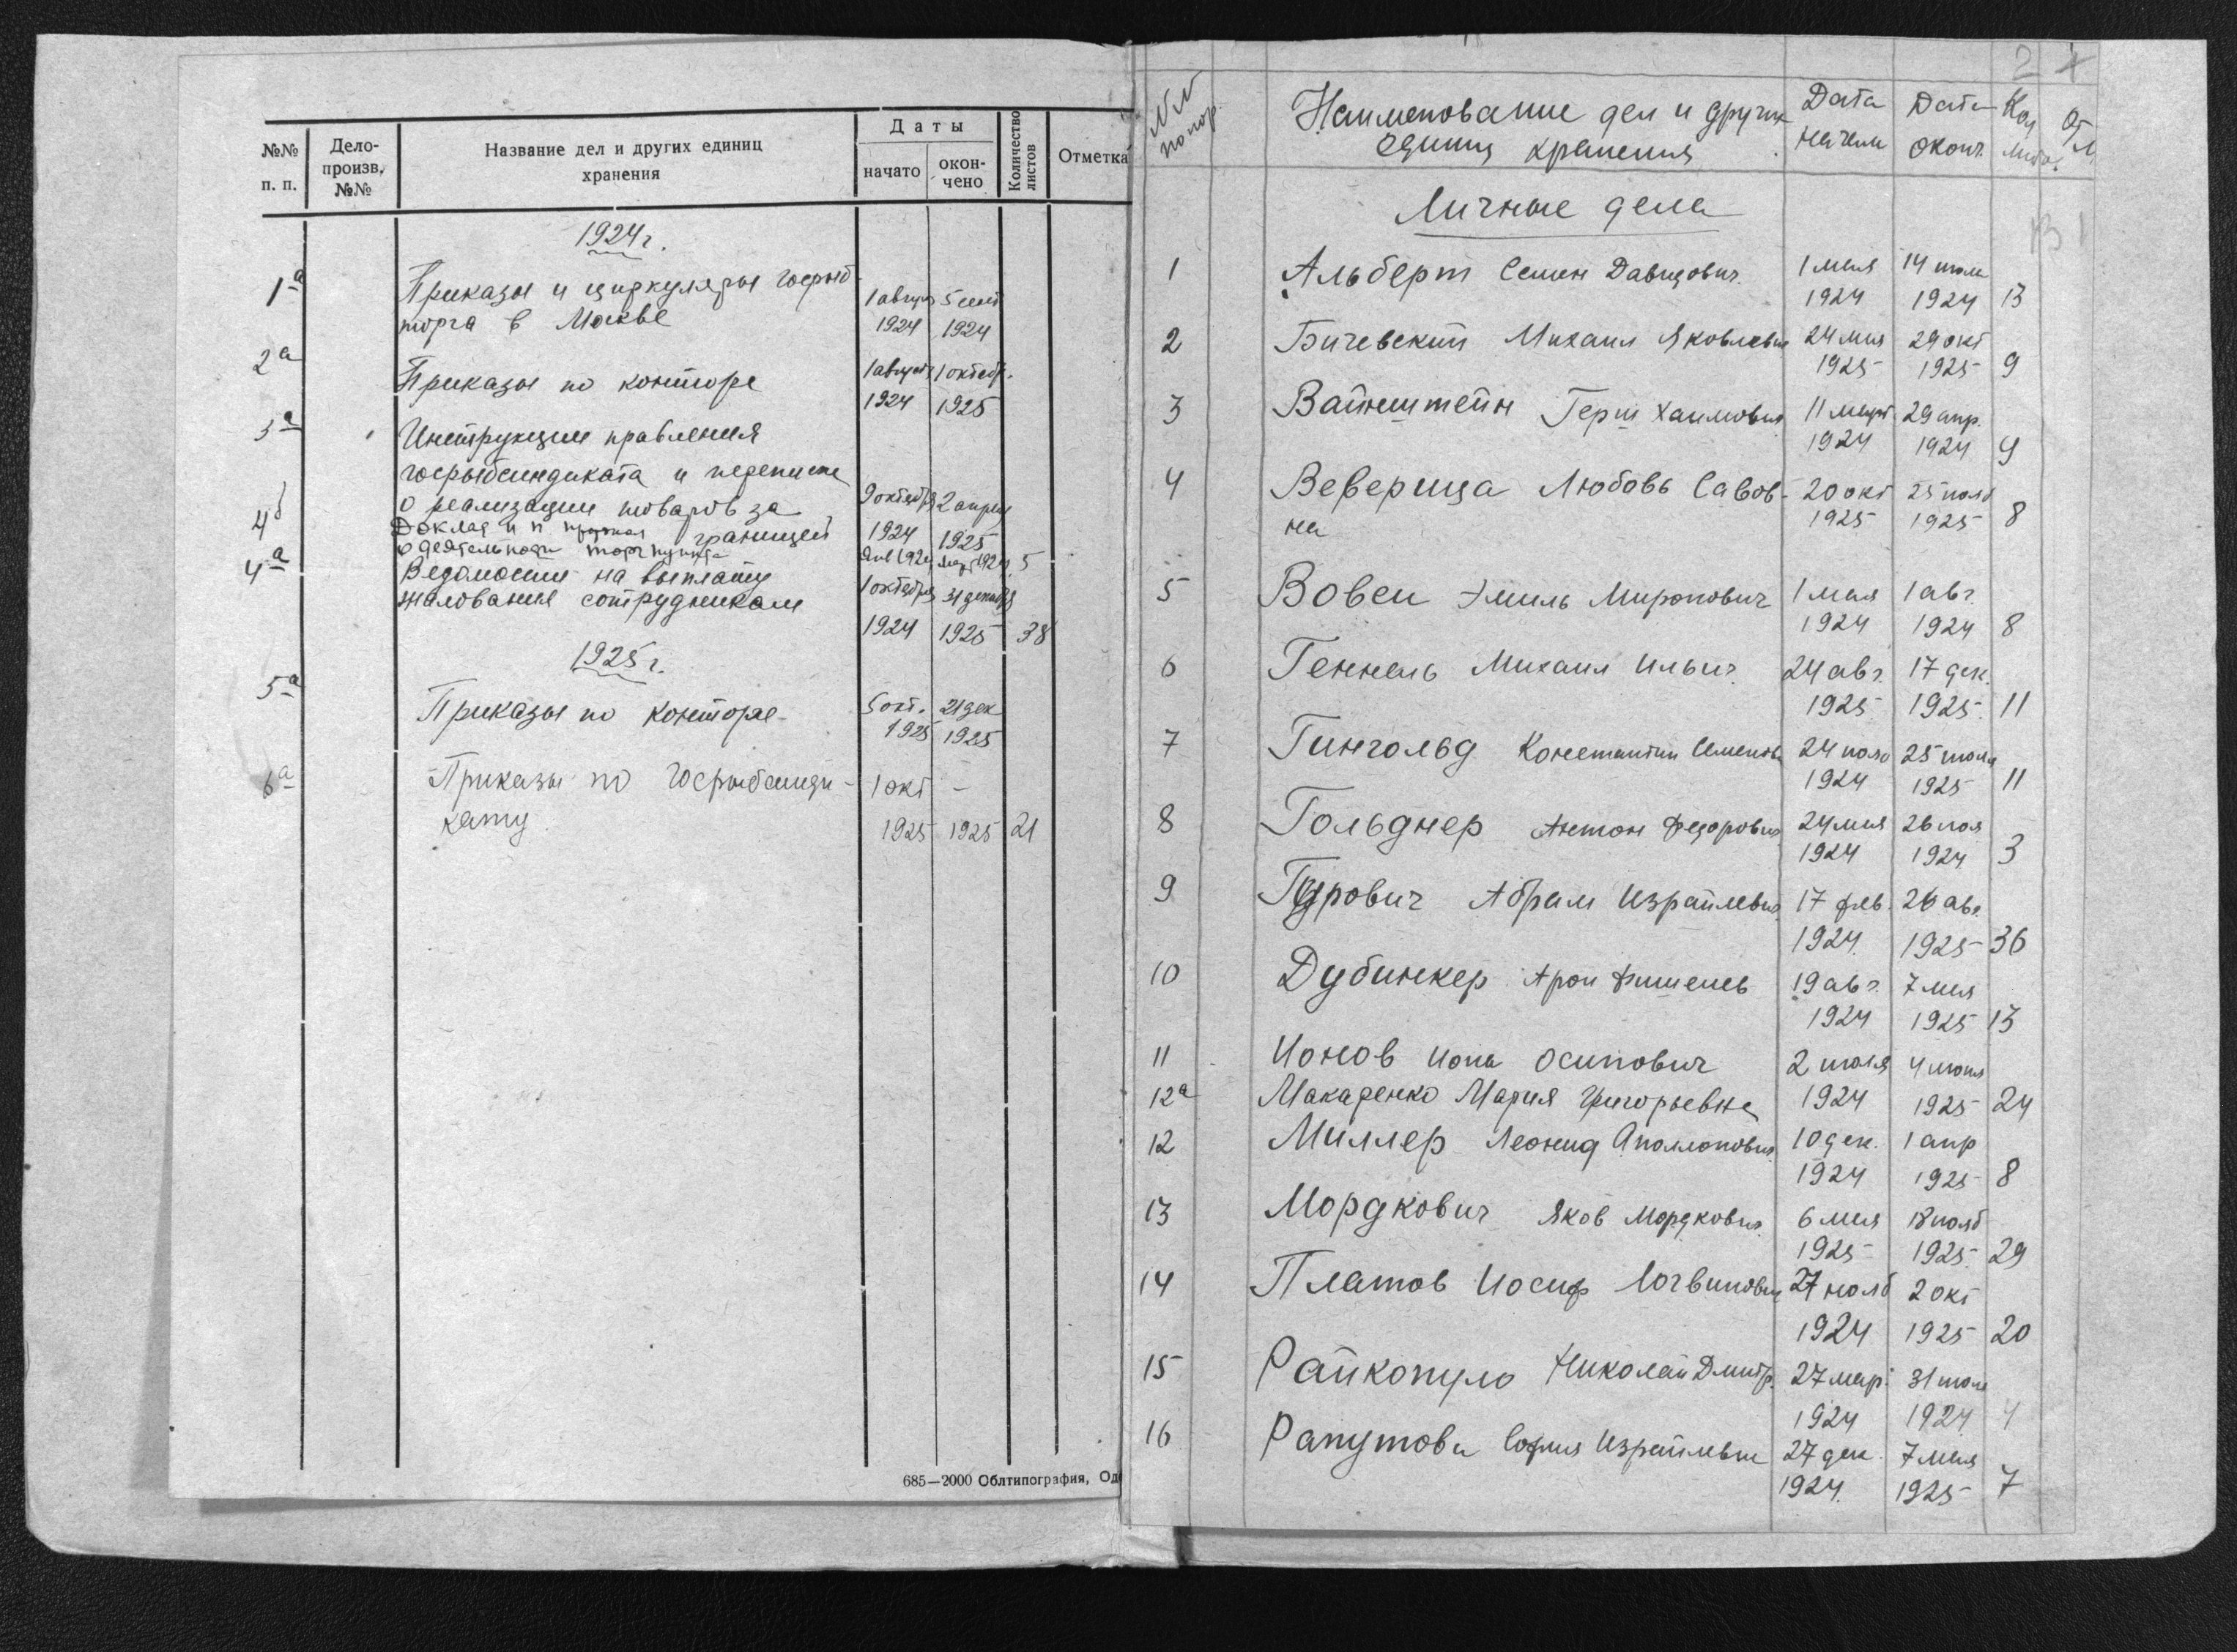 №№ п. п.
Дело-произв. №№
Название дел и других единиц хранения
Даты
начато
окон-чено
Количество листов
Отметка
1924 г.
1а Приказы и циркуляры Госрыб-
торга в Москве
1 август 1924 5 сент 1924
2а Приказы по конторе
1 август 1924 1 октябр. 1925
3а Инструкции правления
Госрыбсиндиката и переписке
о реализации товаров за
границей
9 октября 1924 2 апреля 1925
4б Доклад и п
о деятельности торгпункта
Янв 1924 март 1924 5
4а Ведомости на выплату
жалования сотрудникам
1 октября 1924 31 декабря 1925 38
1925 г.
5а Приказы по конторе
5 окт. 1925 21 дек 1925
6а Приказы по Госрыбсинди-
кату
1 окт 1925 - 1925 21
685—2000 Облтипография, Од
2
№№ по пор.
Наименование дел и других
единиц хранения
Дата начала
Дата оконч.
Кол листов
Отм
Личные дела
1 Альберт Семен Давидович. 1 мая 1924 14 июля 1924 13
2 Бичевский Михаил Яковлевич 24 мая 1925 29 окт 1925 9
3 Вайнштейн Герш Хаимович 11 март 1924 29 апр. 1924 4
4 Веверица Любовь Савов-
на 20 окт 1925 25 нояб 1925 8
5 Вовси Эмиль Миронович 1 мая 1924 1 авг. 1924 8
6 Геннель Михаил Ильич. 24 авг. 1925 17 дек. 1925. 11
7 Гингольд Константин Семенов 24 нояб 1924 25 июля 1925 11
8 Гольднер Антон Федорович 24 мая 1924 26 ноя 1924 3
9 Гурович Абрам Израйлевич 17 фев. 1924. 26 авг. 1925 36
10 Дубинкер Арон Фишелев 19 авг. 1924 7 мая 1925 13
11 Ионов Иона Осипович 2 июля 1924 4 июня 1925 24
12а Макаренко Мария Григорьевна
12 Миллер Леонид Аполлонович 10 дек. 1924 1 апр 1925 8
13 Мордкович Яков Мордкович 6 мая 1925 18 нояб 1925. 29
14 Платов Иосиф Логвинович 27 нояб 1924 2 окт 1925 20
15 Райкопуло Николай Дмитр. 27 мар. 1924 31 июля 1924 4
16 Рапутова София Израйлевна 27 дек. 1924. 7 мая 1925 7